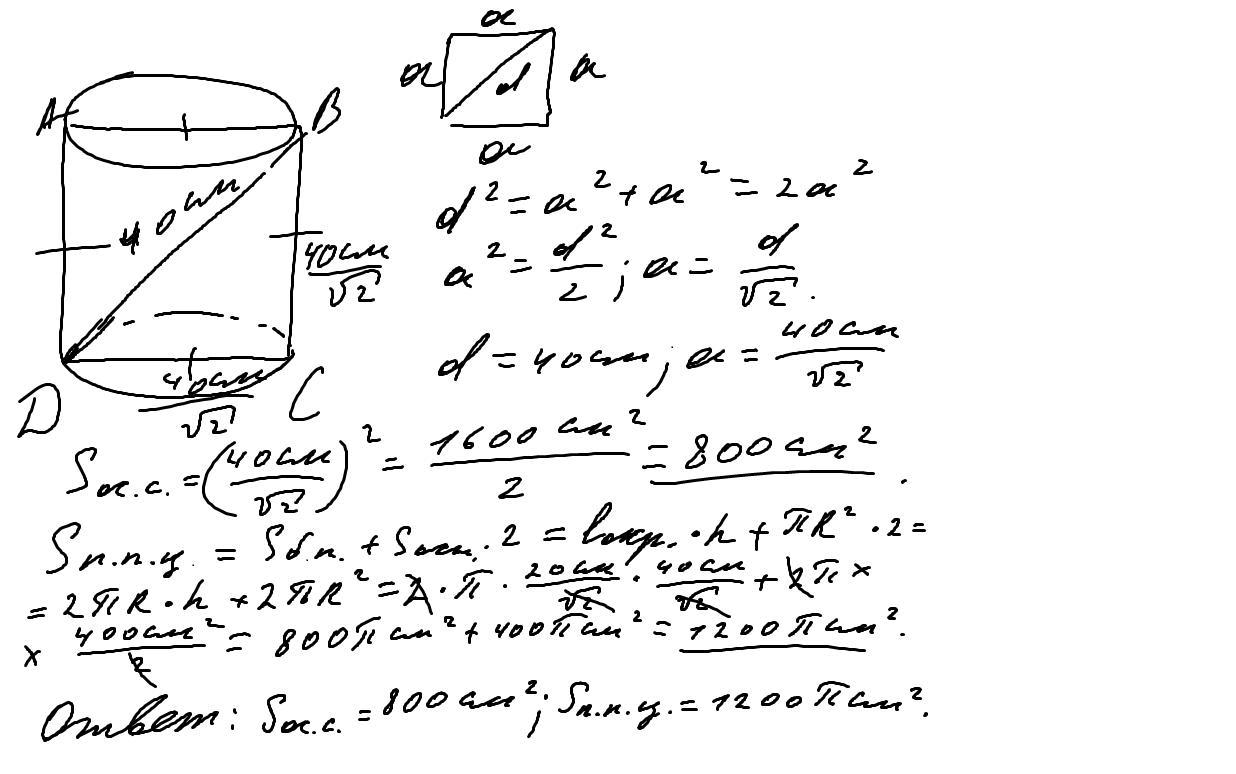 a
a d a
a
A B
40 см
40 см/√2
40 см/√2
D C
d² = a² + a² = 2a²
a² = d²/2; a = d/√2.
d = 40 см; a = 40 см/√2
Sос.с. = (40 см/√2)² = 1600 см²/2 = 800 см².
Sп.п.ц. = Sб.п. + Sосн. · 2 = lокр. · h + πR² · 2 =
= 2πR · h + 2πR² = 2 · π · 20 см/√2 · 40 см/√2 + 2π ×
× 400 см²/2 = 800π см² + 400π см² = 1200π см².
Ответ: Sос.с. = 800 см²; Sп.п.ц. = 1200π см².